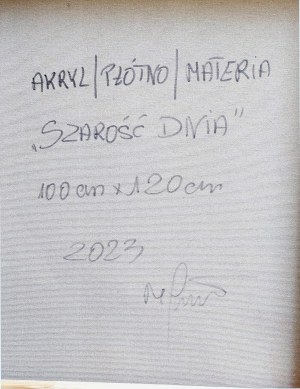 AKRYL/PŁÓTNO/MATERIA
„SZAROŚĆ DNIA"
100 cm x 120 cm
2023